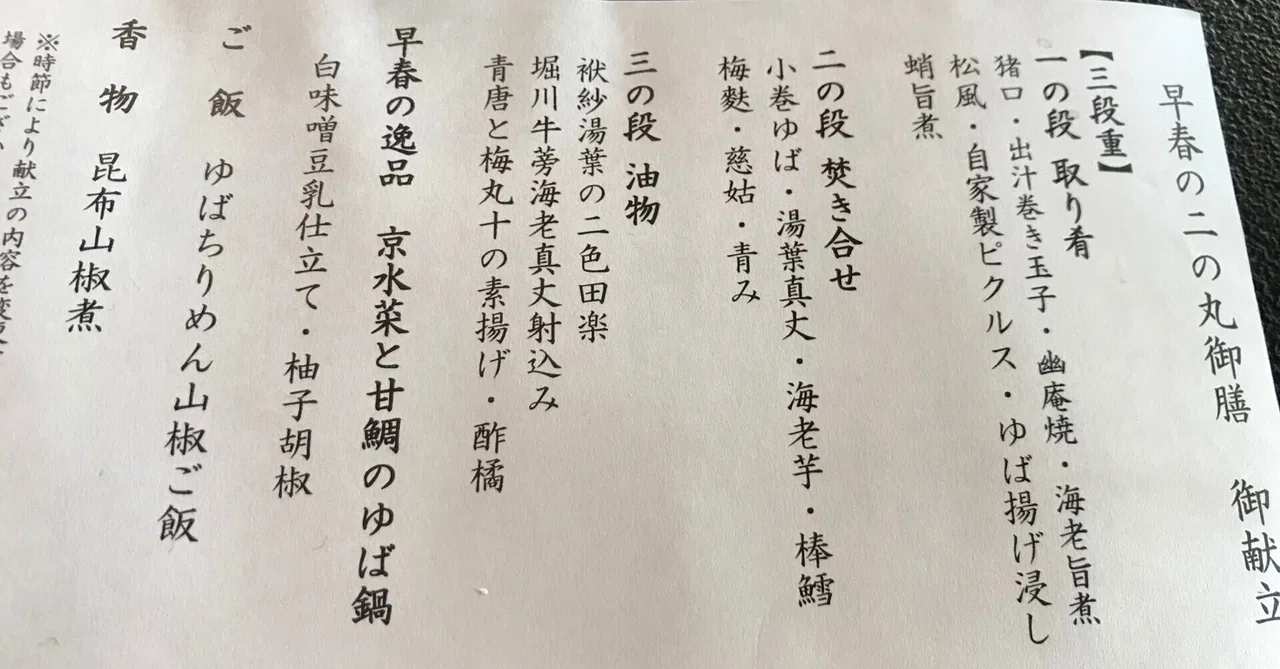 早春の二の丸御膳 御献立
【三段重】
一の段 取り肴
猪口・出汁巻き玉子・幽庵焼・海老旨煮
松風・自家製ピクルス・ゆば揚げ浸し
蛸旨煮
二の段 焚き合せ
小巻ゆば・湯葉真丈・海老芋・棒鱈
梅麩・慈姑・青み
三の段 油物
袱紗湯葉の二色田楽
堀川牛蒡海老真丈射込み
青唐と梅丸十の素揚げ・酢橘
早春の逸品 京水菜と甘鯛のゆば鍋
白味噌豆乳仕立て・柚子胡椒
ご飯 ゆばちりめん山椒ご飯
香物 昆布山椒煮
※時節により献立の内容を変更
場合もござい